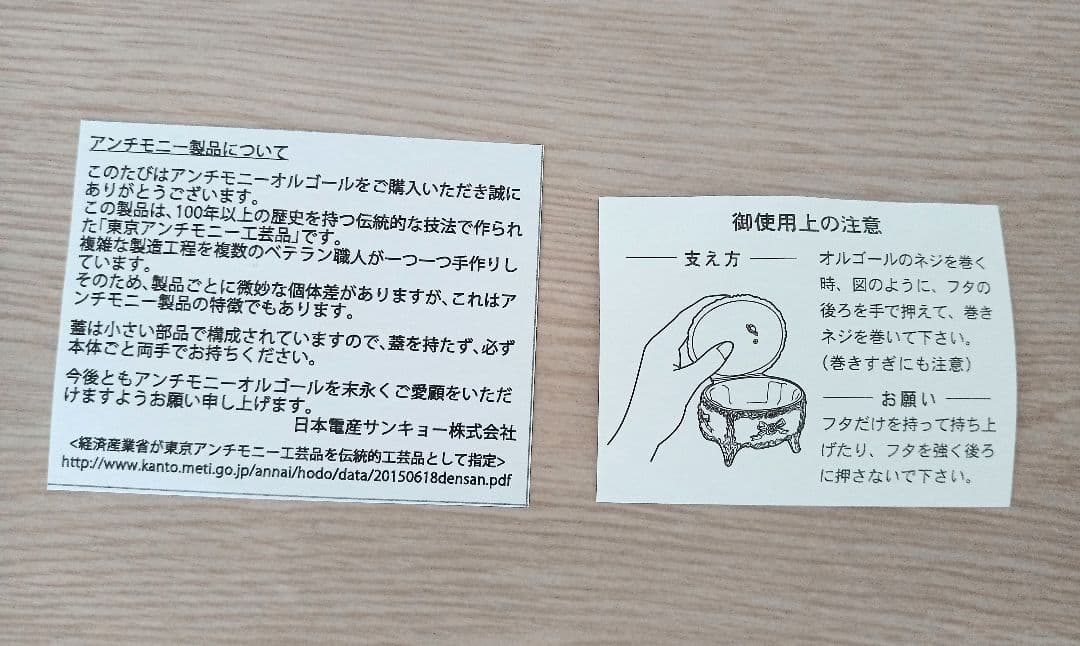 アンチモニー製品について
このたびはアンチモニーオルゴールをご購入いただき誠に
ありがとうございます。
この製品は、100年以上の歴史を持つ伝統的な技法で作られ
た「東京アンチモニー工芸品」です。
複雑な製造工程を複数のベテラン職人が一つ一つ手作りし
ています。
そのため、製品ごとに微妙な個体差がありますが、これはア
ンチモニー製品の特徴でもあります。
蓋は小さい部品で構成されていますので、蓋を持たず、必ず
本体ごと両手でお持ちください。
今後ともアンチモニーオルゴールを末永くご愛顧をいただ
けますようお願い申し上げます。
日本電産サンキョー株式会社
<経済産業省が東京アンチモニー工芸品を伝統的工芸品として指定>
http://www.kanto.meti.go.jp/annai/hodo/data/20150618densan.pdf
御使用上の注意
支え方
オルゴールのネジを巻く
時、図のように、フタの
後ろを手で押えて、巻き
ネジを巻いて下さい。
(巻きすぎにも注意)
お願い
フタだけを持って持ち上
げたり、フタを強く後ろ
に押さないで下さい。